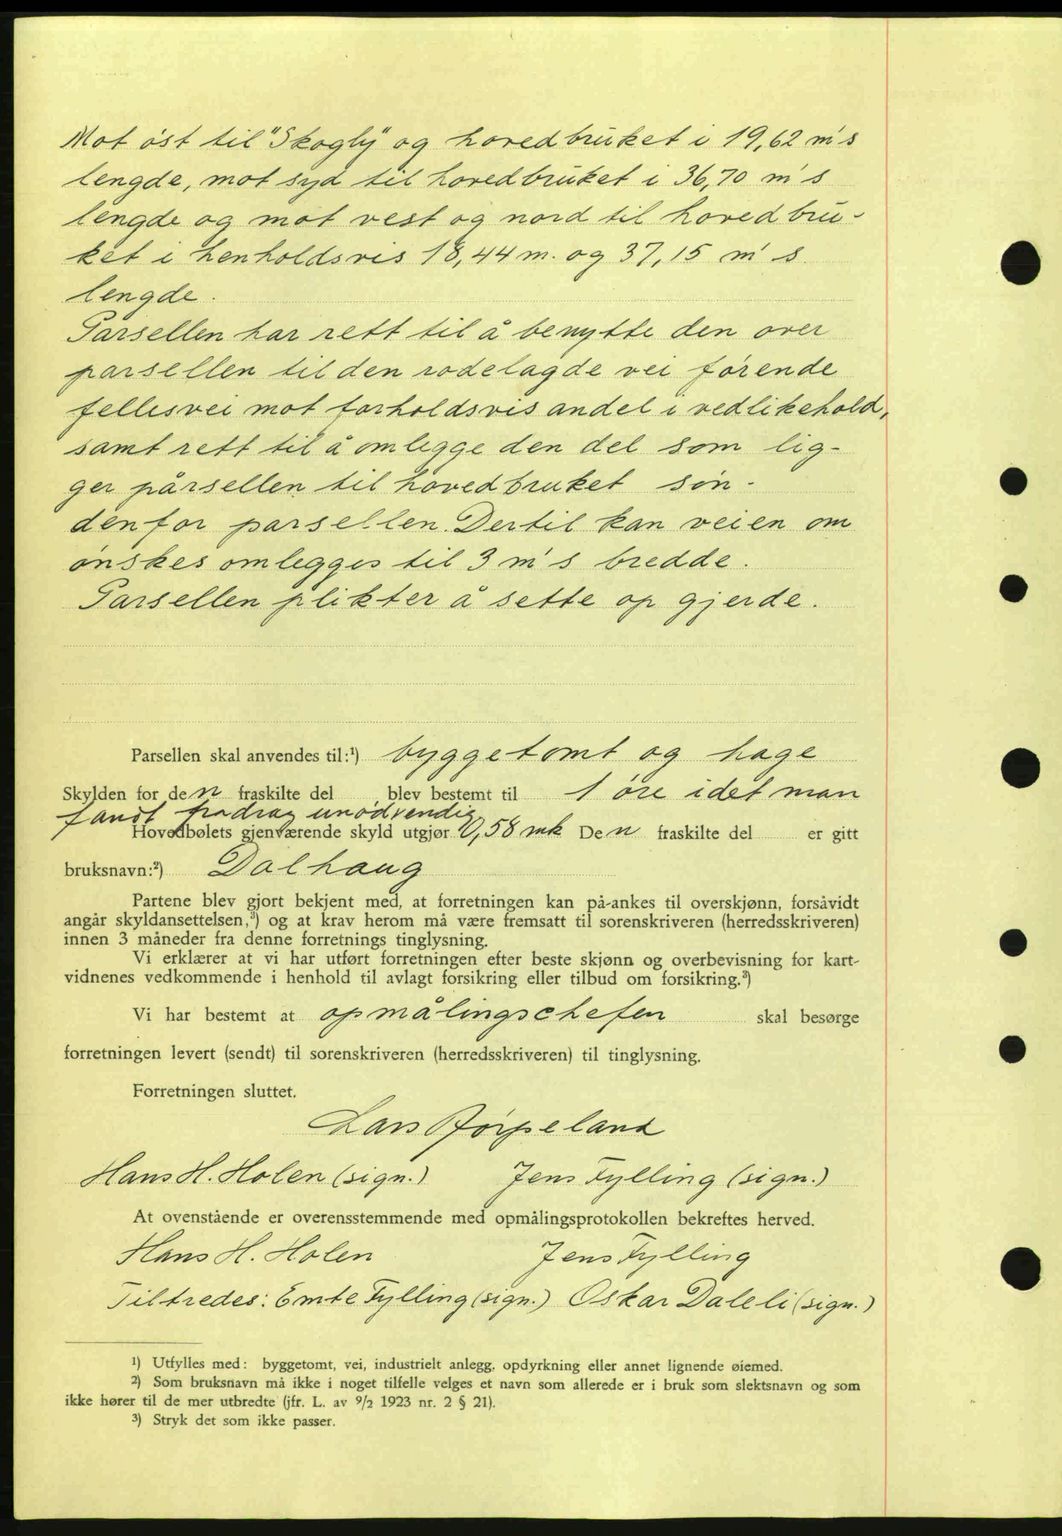 Mot øst til "Skogly" og hovedbruket i 19,62 m's
lengde, mot syd til hovedbruket i 36,70 m's
lengde og mot vest og nord til hovedbru-
ket i henholdsvis 18,44 m. og 37,15 m's
lengde.
Parsellen har rett til å benytte den over
parsellen til den rodelagde vei førende
fellesvei mot forholdsvis andel i vedlikehold,
samt rett til å omlegge den del som lig-
ger på parsellen til hovedbruket søn-
denfor parsellen. Dertil kan veien om
ønskes omlegges til 3 m's bredde.
Parsellen plikter å sette op gjerde.
Parsellen skal anvendes til:¹) byggetomt og hage
Skylden for den fraskilte del blev bestemt til 1 øre idet man
fandt fradrag unødvendig
Hovedbølets gjenværende skyld utgjør 0,58 mk Den fraskilte del er gitt
bruksnavn:²) Dalhaug
Partene blev gjort bekjent med, at forretningen kan på-ankes til overskjønn, forsåvidt
angår skyldansettelsen,³) og at krav herom må være fremsatt til sorenskriveren (herredsskriveren)
innen 3 måneder fra denne forretnings tinglysning.
Vi erklærer at vi har utført forretningen efter beste skjønn og overbevisning for kart-
vidnenes vedkommende i henhold til avlagt forsikring eller tilbud om forsikring.³)
Vi har bestemt at opmålingschefen skal besørge
forretningen levert (sendt) til sorenskriveren (herredsskriveren) til tinglysning.
Forretningen sluttet.
Lars Jørpeland
Hans H. Holen (sign.) Jens Fylling (sign.)
At ovenstående er overensstemmende med opmålingsprotokollen bekreftes herved.
Hans H. Holen Jens Fylling
Tiltredes: Emte Fylling (sign.) Oskar Daleli (sign.)
¹) Utfylles med: byggetomt, vei, industrielt anlegg, opdyrkning eller annet lignende øiemed.
²) Som bruksnavn må ikke i noget tilfelle velges et navn som allerede er i bruk som slektsnavn og som
ikke hører til de mer utbredte (jfr. L. av 9/2 1923 nr. 2 § 21).
³) Stryk det som ikke passer.